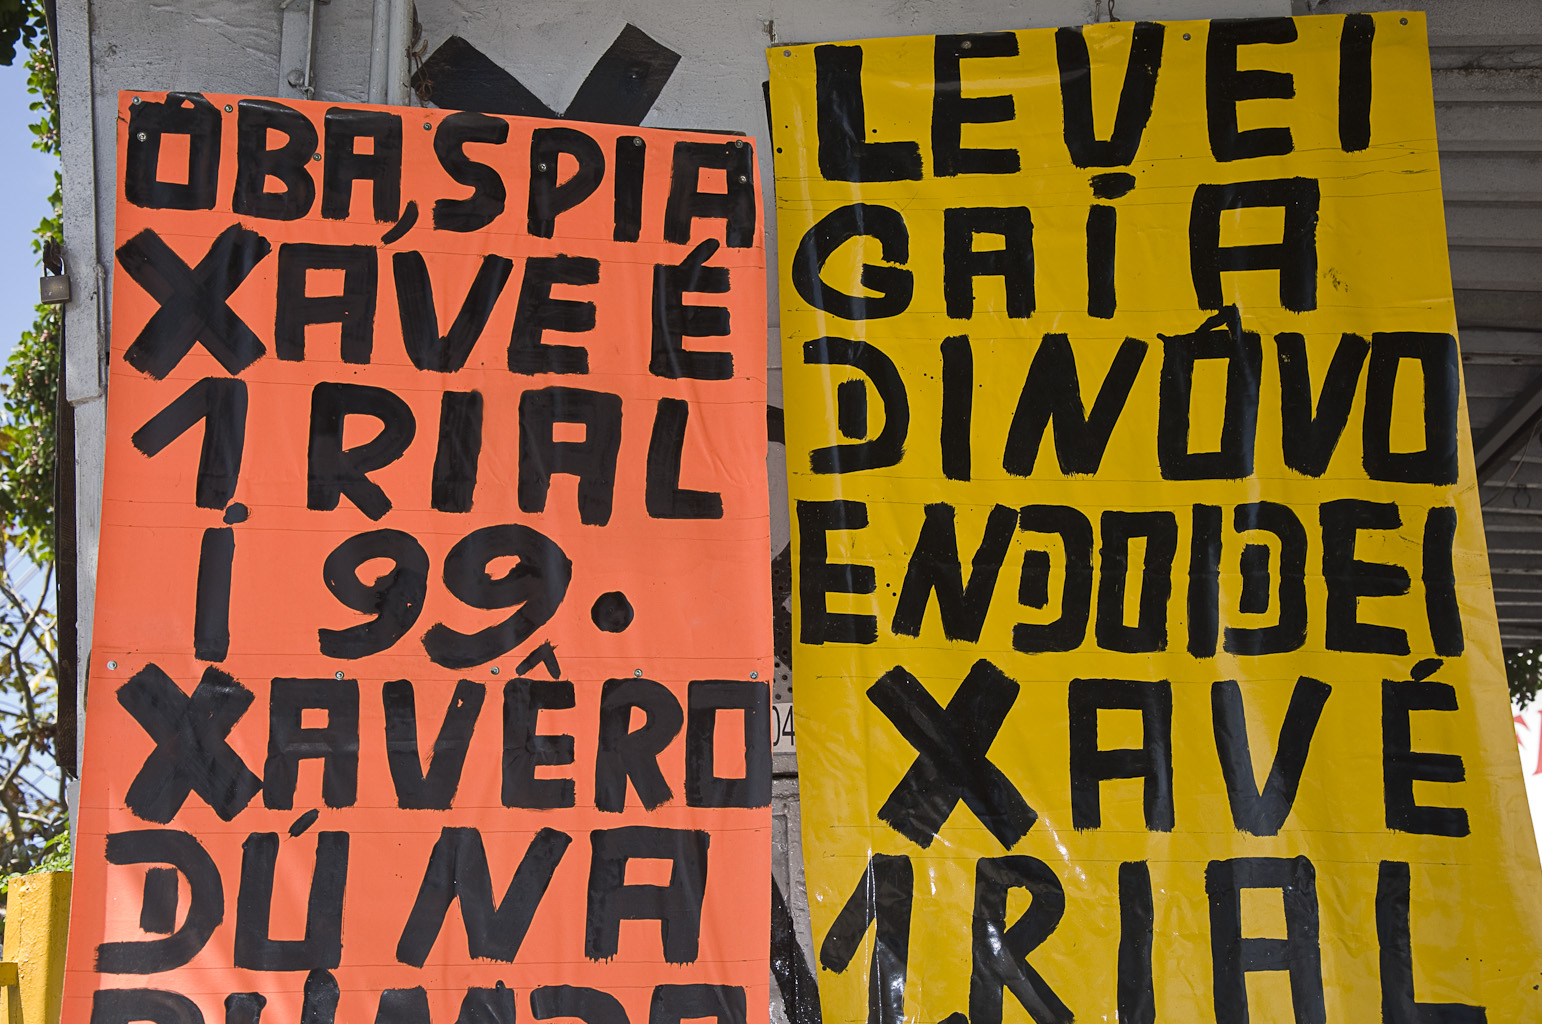 ÔBA, SPIA
XAVE É
1 RIAL
i 99.
XAVÊRO
DÚ NA
LEVEI
GAiA
DINÓVO
ENDOIDEI
XAVÉ
1 RIAL
04